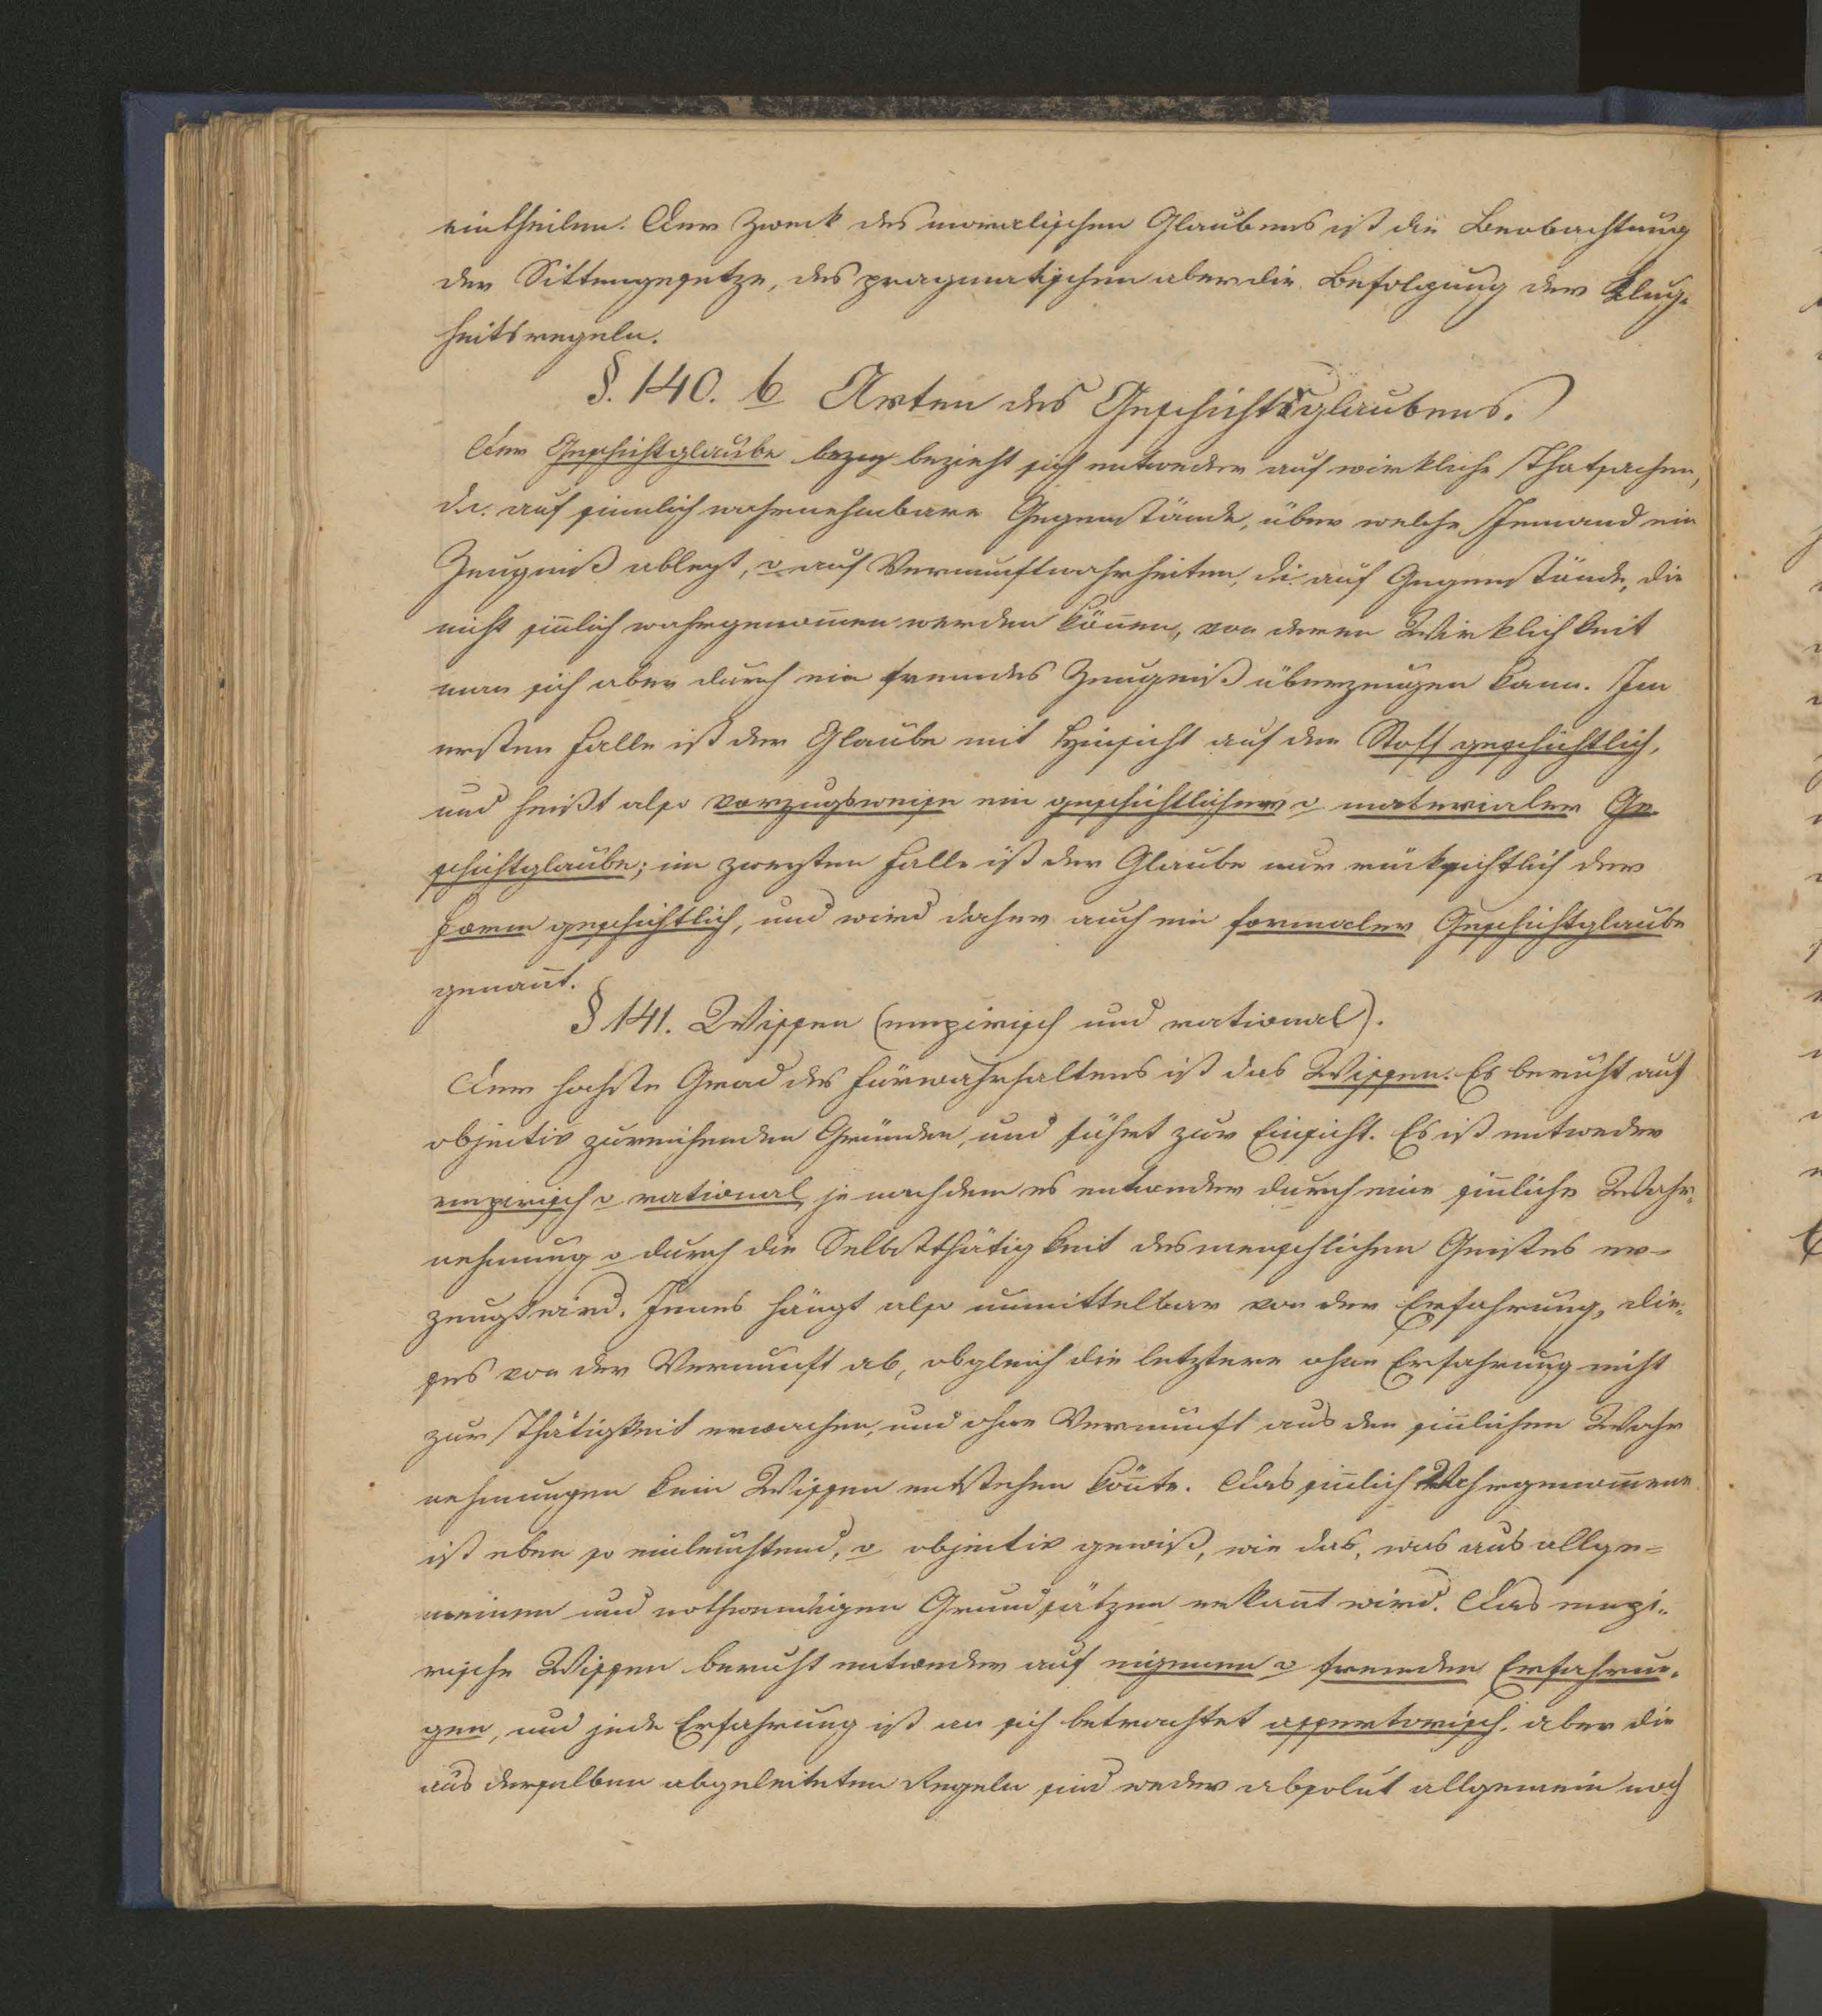 eintheilen. Der Zweck des moralischen Glaubens ist die Beobachtung
der Sittengesetze, des pragmatischen aber die Befolgung der Klug-
heitsregeln.
§. 140. b Arten des Geschichtsglaubens.
Der Geschichtglaube bezog bezieht sich entweder auf wirkliche Thatsachen,
d.i. auf sinnlich wahrnehmbare Gegenstände, über welche Jemand ein
Zeugniß ablegt, o auf Vernunftwahrheiten, d.i. auf Gegenstände, die
nicht siñlich wahrgenom̄en werden köñen, von deren Wirklichkeit
man sich aber durch ein fremdes Zeugniß überzeugen kann. Im
ersten Falle ist der Glaube mit Hinsicht auf den Stoff geschichtlich,
und heißt also vorzugsweise ein geschichtlicher o materialer Ge-
schichtglaube; im zweyten Falle ist der Glaube nur rücksichtlich der
Form geschichtlich, und wird daher auch ein formaler Geschichtglaube
genañt.
§ 141. Wissen (empirisch und rational).
Der hochste Grad des Fürwahrhaltens ist das Wissen. Es beruht auf
objectiv zureichenden Gründen, und führt zur Einsicht. Es ist entweder
empirisch o rational, je nachdem es entweder durch eine siñliche Wahr-
nehmung o durch die Selbstthätigkeit des menschlichen Geistes er-
zeugt wird. Jenes hängt also unmittelbar von der Erfahrung, die-
ses von der Vernunft ab, obgleich die letztere ohne Erfahrung nicht
zur Thätigkeit erwachen, und ohne Vernunft aus den siñlichen Wahr
nehmungen kein Wissen entstehen köñte. Das siñlich Wahrgenom̄ene
ist eben so einleuchtend, o objectiv gewiß, wie das, was aus allge-
meinen und nothwendigen Grundsätzen erkañt wird. Das empi-
rische Wissen beruht entweder auf eigenen o fremden Erfahrun-
gen, und jede Erfahrung ist an sich betrachtet assertorisch, aber die
aus derselben abgeleiteten Regeln sind weder absolut allgemein noch